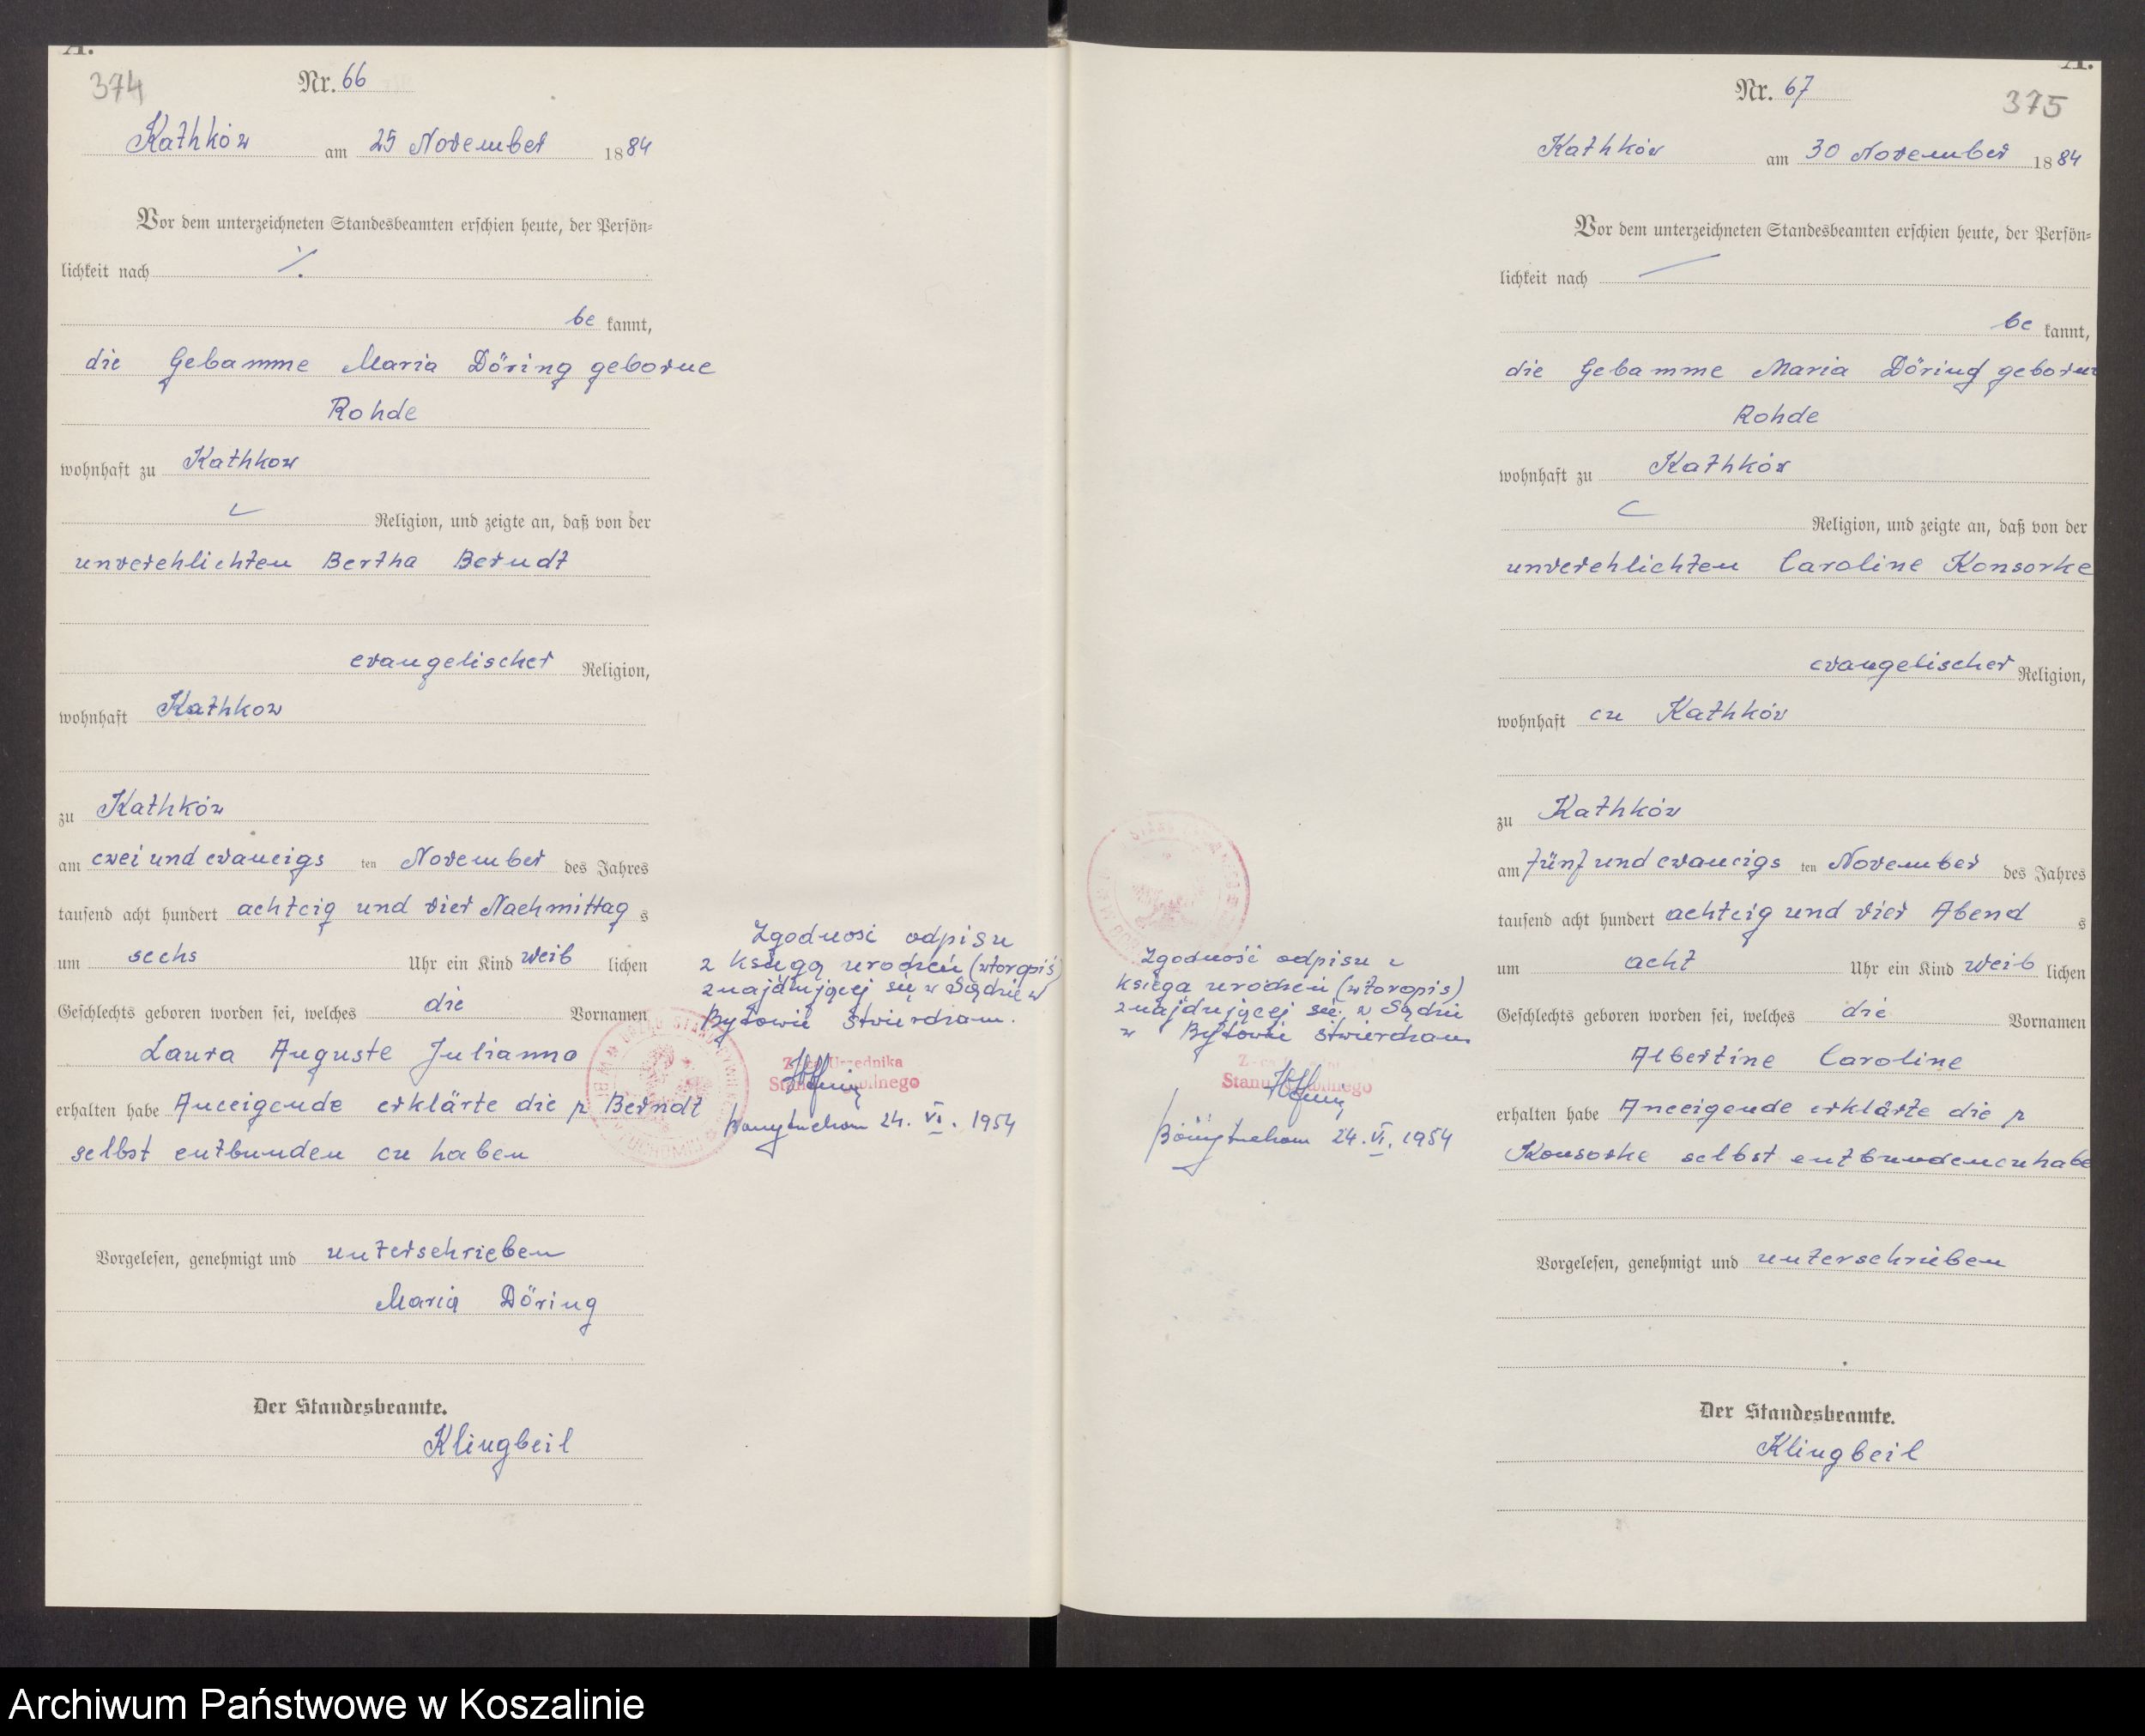 A.
374
Nr. 66
Kathków am 25 November 1884
Vor dem unterzeichneten Standesbeamten erschien heute, der Persön-
lichkeit nach
be kannt,
die Gebamme Maria Döring geborne
Rohde
wohnhaft zu Kathkow
Religion, und zeigte an, daß von der
unverehlichten Bertha Berndt
evangelischer Religion,
wohnhaft Kathkow
zu Kathków
am cwei und cvancigs ten November des Jahres
tausend acht hundert achtcig und vier Nachmittag s
um sechs Uhr ein Kind weib lichen
Geschlechts geboren worden sei, welches die Vornamen
Laura Auguste Julianna
erhalten habe Anceigende erklärte die p Berndt
selbst entbunden cu haben
Vorgelesen, genehmigt und unterschrieben
Maria Döring
Der Standesbeamte.
Klingbeil
Zgodność odpisu
z księgą urodzeń (wtoropis)
znajdującej się w Sądzie w
Bytowie stwierdzam.
Z-ca Urzędnika
Stanu Cywilnego
24. VI. 1954
A.
Nr. 67
375
Kathków am 30 November 1884
Vor dem unterzeichneten Standesbeamten erschien heute, der Persön-
lichkeit nach
be kannt,
die Gebamme Maria Döring geborne
Rohde
wohnhaft zu Kathków
Religion, und zeigte an, daß von der
unverehlichten Caroline Konsorke
evangelischer Religion,
wohnhaft cu Kathków
zu Kathków
am fünf und cvancigs ten November des Jahres
tausend acht hundert achtcig und vier Abend s
um acht Uhr ein Kind weib lichen
Geschlechts geboren worden sei, welches die Vornamen
Albertine Caroline
erhalten habe Anceigende erklärte die p
Konsorke selbst entbunden cu habe
Vorgelesen, genehmigt und unterschrieben
Der Standesbeamte.
Klingbeil
Zgodność odpisu z
księgą urodzeń (wtoropis)
znajdującej się w Sądzie
w Bytowie stwierdzam
Stanu Cywilnego
24. VI. 1954
Archiwum Państwowe w Koszalinie